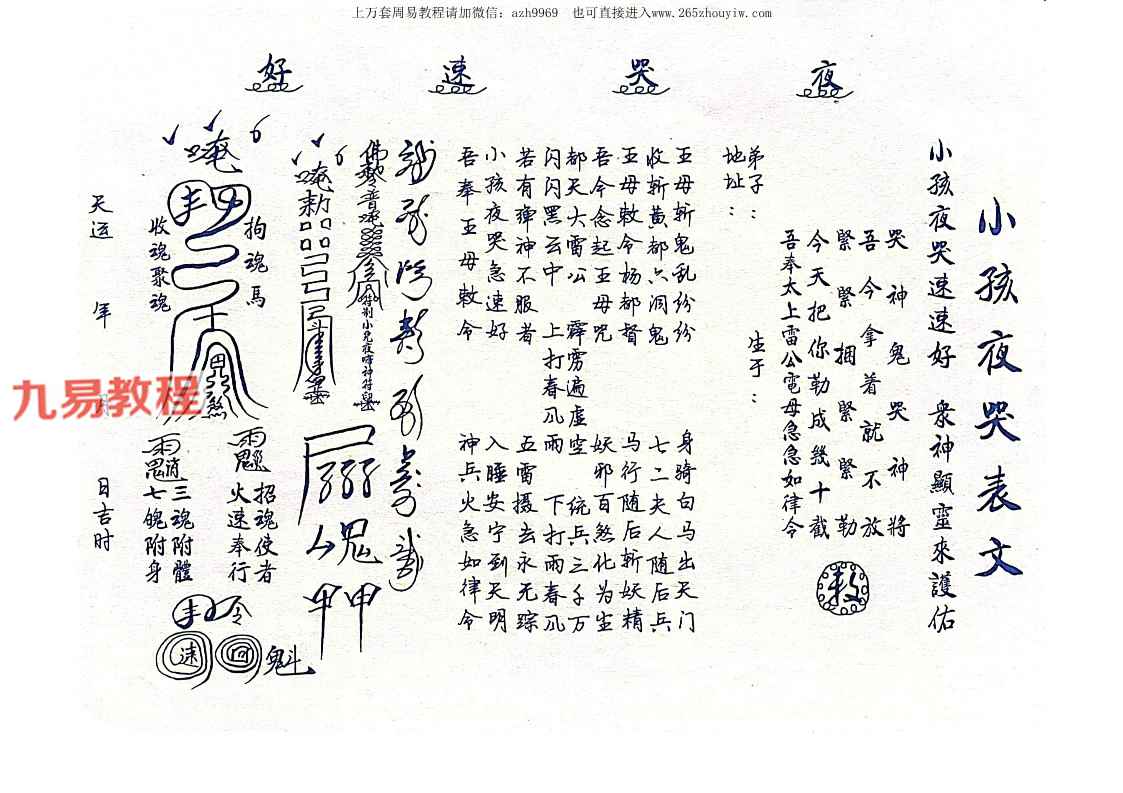 上万套周易教程请加微信：azh9969 也可直接进入www.265zhouyiw.com
夜 哭 速 好
小孩夜哭表文
小孩夜哭速速好 衆神顯靈來護佑
哭神鬼哭神將
吾今拿着就不放
緊緊捆緊緊勒
今天把你勒成幾十截
吾奉太上雷公電母急急如律令
敕
弟子： 生于：
地址：
王母斩鬼乱纷纷 身骑白马出天门
收斩黄都六洞鬼 七二夫人随后兵
王母敕令杨都督 马行随后斩妖精
吾今念起王母咒 妖邪百煞化为尘
都天大雷公 霹雳遍虚空 统兵三千万
闪闪黑云中 上打春风雨 下打雨春风
若有弹神不服者 五雷摄去永无踪
小孩夜哭急速好 入睡安宁到天明
吾奉王母敕令 神兵火急如律令
唵
拘魂馬
收魂聚魂
煞
招魂使者
火速奉行
三魂附體
七魄附身
令
速
魁
天运 年 月 日吉时
九易教程